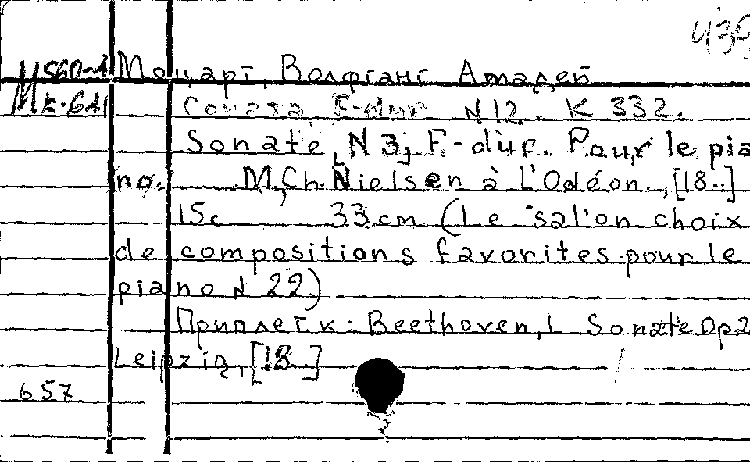 439
М560-1 Моцарт, Волфганг Амадей
Mz-641 Соната F-dur N 12. K 332.
Sonate, N 3, F-dur. Pour le pia
no. M, Ch. Nielsen à L'Odéon, [18..]
15c 33 cm (Le salon choix
de compositions favorites pour le
piano N 22)
Приплет к: Beethoven, L Sonate Op 2
Leipzig, [18..]
657